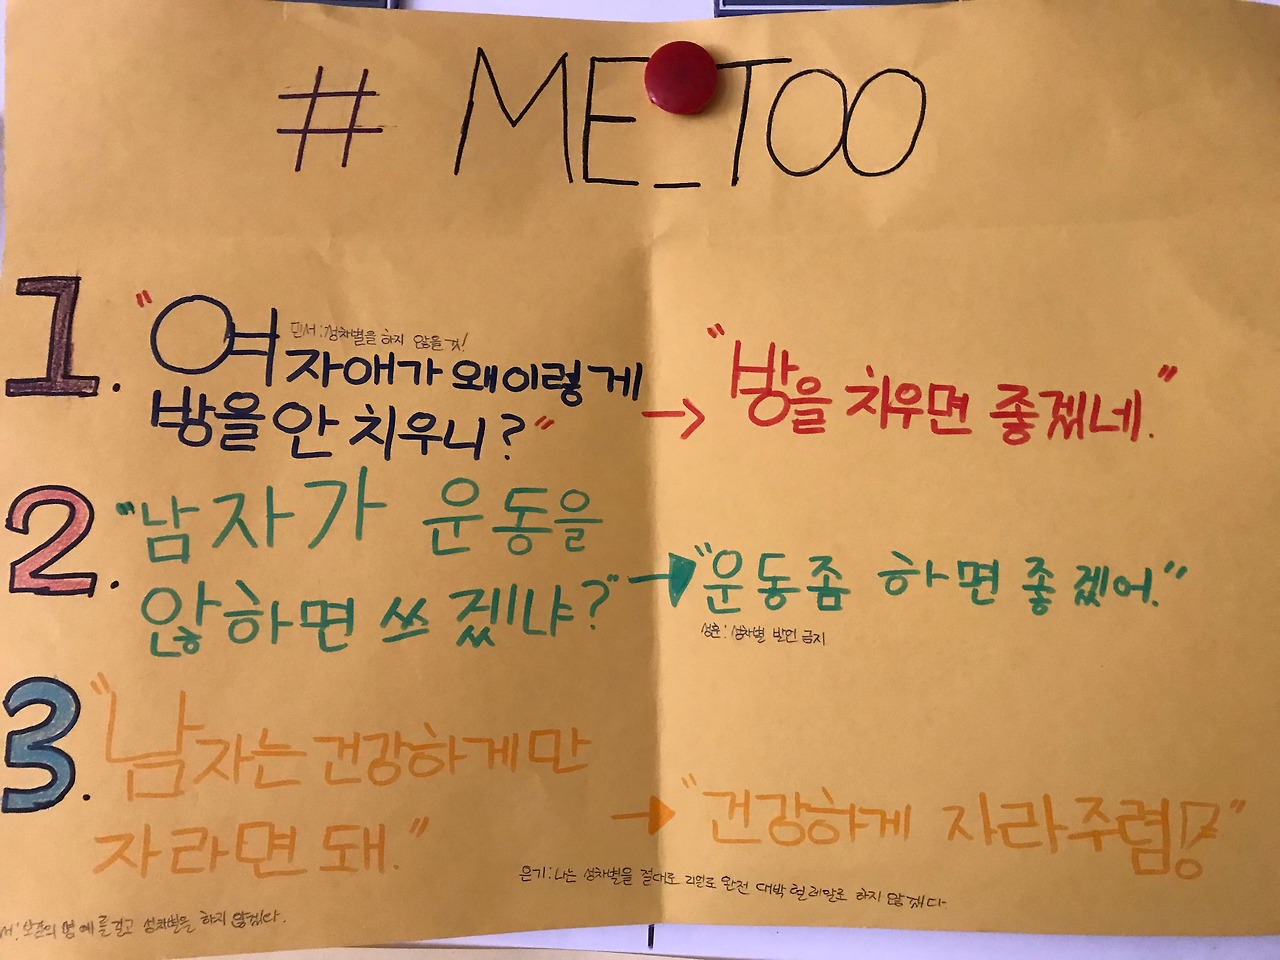 # ME_TOO
1. "여자애가 왜이렇게
민서:성차별을 하지 않을 것!
방을 안 치우니?"
→ "방을 치우면 좋겠네."
2. "남자가 운동을
않하면 쓰겠냐?"
→ "운동좀 하면 좋겠어."
성훈: 성차별 발언 금지
3. "남자는 건강하게만
자라면 돼."
→ "건강하게 자라주렴!"
은기:나는 성차별을 절대로 리얼로 완전 대박 헐 레알로 하지 않겠다
서: 의 명예를 걸고 성차별을 하지 않겠다.